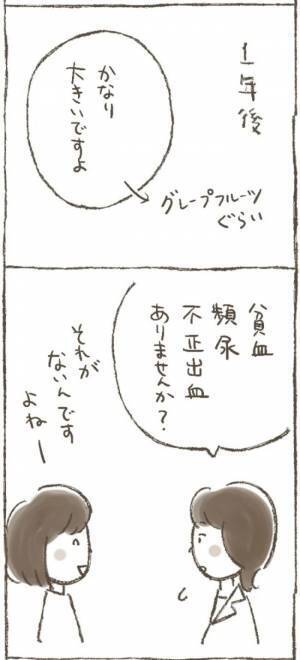 1年後
かなり
大きいですよ
グレープフルーツ
ぐらい
貧血
頻尿
不正出血
ありませんか?
それが
ないんです
よねー